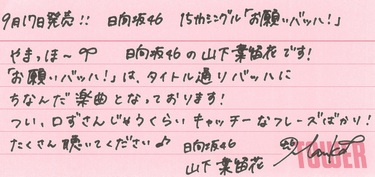 9月17日発売!! 日向坂46 15thシングル「お願いバッハ!」
やまっほ〜 日向坂46の山下葉留花です!
「お願いバッハ!」は、タイトル通りバッハに
ちなんだ楽曲となっております!
つい、口ずさんじゃうくらいキャッチーなフレーズばかり!
たくさん聴いてください♪ 日向坂46
山下葉留花
TOWER